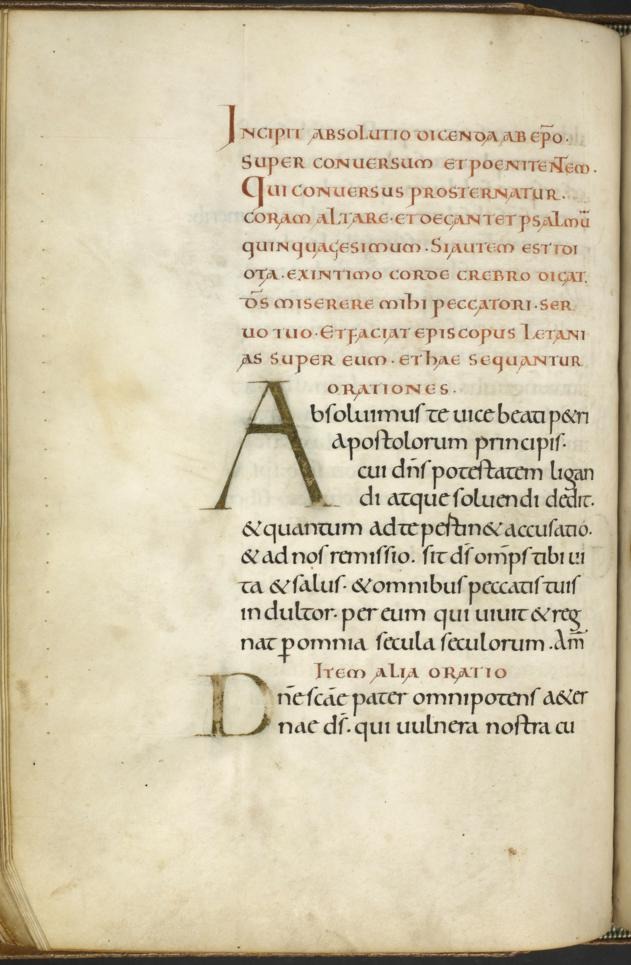 INCIPIT ABSOLUTIO DICENDA AB EP̅O.
SUPER CONUERSUM ET POENITENTEM.
QUI CONUERSUS PROSTERNATUR.
CORAM ALTARE. ET DECANTET PSALMŪ
QUINQUAGESIMUM. SI AUTEM EST IDI
OTA. EX INTIMO CORDE CREBRO DICAT.
D̅S MISERERE MIHI PECCATORI. SER
UO TUO. ET FACIAT EPISCOPUS LETANI
AS SUPER EUM. ET HAE SEQUANTUR
ORATIONES.
Absoluimus te uice beati p&ri
apostolorum principis.
cui dn̅s potestatem ligan
di atque soluendi dedit.
& quantum ad te pestin& accusatio.
& ad nos remissio. sit ds̅ om̅ps tibi ui
ta & salus. & omnibus peccatis tuis
indultor. per eum qui uiuit & reg
nat ꝑ omnia secula seculorum. Am̅
ITEM ALIA ORATIO
Dn̅e sc̅ae pater omnipotens a&er
nae ds̅. qui uulnera nostra cu